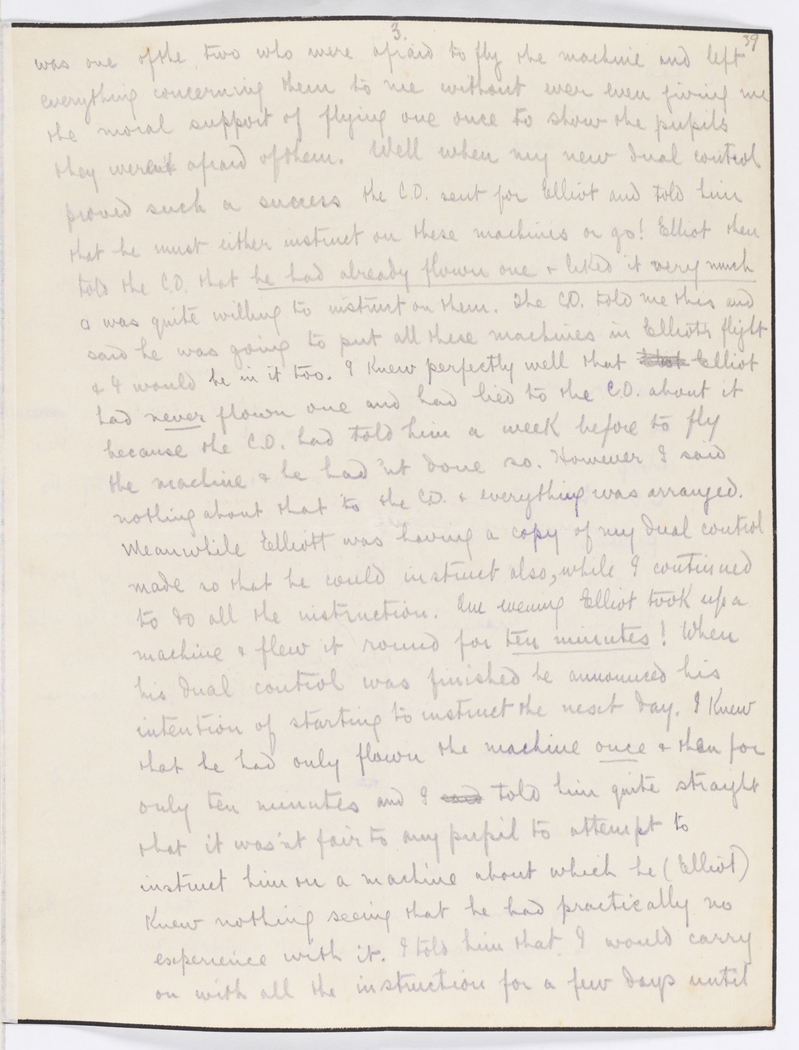 3.
39
was one of the two who were afraid to fly the machine and left
everything concerning them to me without ever even giving me
the moral support of flying one once to show the pupils
they weren't afraid of them. Well when my new dual control
proved such a success the C.O. sent for Elliot and told him
that he must either instruct on these machines or go! Elliot then
told the C.O. that he had already flown one & liked it very much
& was quite willing to instruct on them. The C.O. told me this and
said he was going to put all these machines in Elliot's flight
& I would be in it too. I knew perfectly well that Elliot
had never flown one and had lied to the C.O. about it
because the C.O. had told him a week before to fly
the machine & he had'nt done so. However I said
nothing about that to the C.O. & everything was arranged.
Meanwhile Elliott was having a copy of my dual control
made so that he could instruct also, while I continued
to do all the instruction. One evening Elliot took up a
machine & flew it round for ten minutes! When
his dual control was finished he announced his
intention of starting to instruct the next day. I knew
that he had only flown the machine once & then for
only ten minutes and I said told him quite straight
that it was'nt fair to any pupil to attempt to
instruct him on a machine about which he (Elliot)
knew nothing seeing that he had practically no
experience with it. I told him that I would carry
on with all the instruction for a few days until